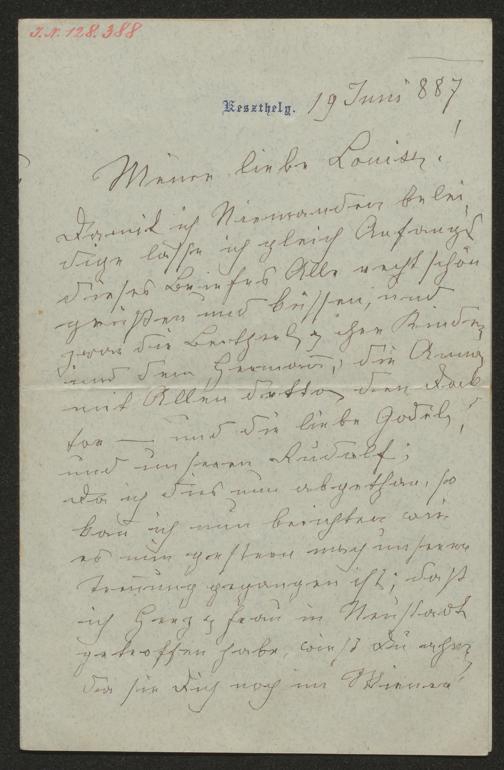 J.N. 128.388
Keszthely. 19 Juni 887
Meine liebe Louise!
Damit ich Niemanden belei-
dige lasse ich gleich Anfangs
dieses Briefes Alle recht schön
grüßen und küssen, und
zwar die Kinder
und den Hermann, die Anna
mit Allen detto den Dok
tor — und die liebe Godel,
und unseren Rudolf;
Da ich dies nun abgethan, so
kan ich nun berichten wie
es mir gestern nach unserer
Trennung gegangen ist; daß
ich Herz & Frau in Neustadt
getroffen habe, wirst Du
da sie Dich noch im Wiener